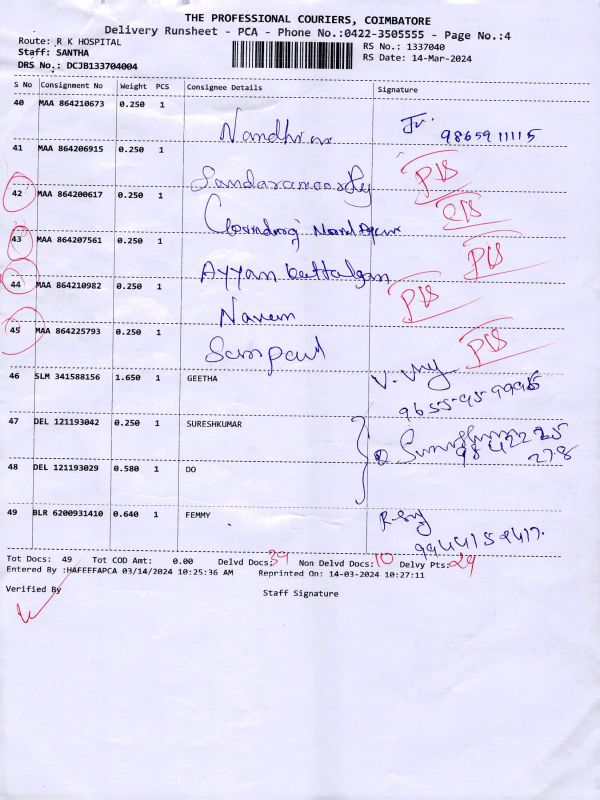 THE PROFESSIONAL COURIERS, COIMBATORE
Delivery Runsheet - PCA - Phone No.:0422-3505555 - Page No.:4
Route: R K HOSPITAL
RS No.: 1337040
Staff: SANTHA
RS Date: 14-Mar-2024
DRS No.: DCJB133704004
S No Consignment No Weight PCS Consignee Details Signature
40 MAA 864210673 0.250 1
9865911115
41 MAA 864206915 0.250 1
42 MAA 864200617 0.250 1
43 MAA 864207561 0.250 1
44 MAA 864210982 0.250 1
Naveen
45 MAA 864225793 0.250 1
Sampaul
46 SLM 341588156 1.650 1 GEETHA
47 DEL 121193042 0.250 1 SURESHKUMAR
48 DEL 121193029 0.580 1 DO
49 BLR 6200931410 0.640 1 FEMMY
Tot Docs: 49 Tot COD Amt: 0.00 Delvd Docs: 39 Non Delvd Docs: 10 Delvy Pts: 29
Entered By :HAFEEFAPCA 03/14/2024 10:25:36 AM Reprinted On: 14-03-2024 10:27:11
Verified By Staff Signature